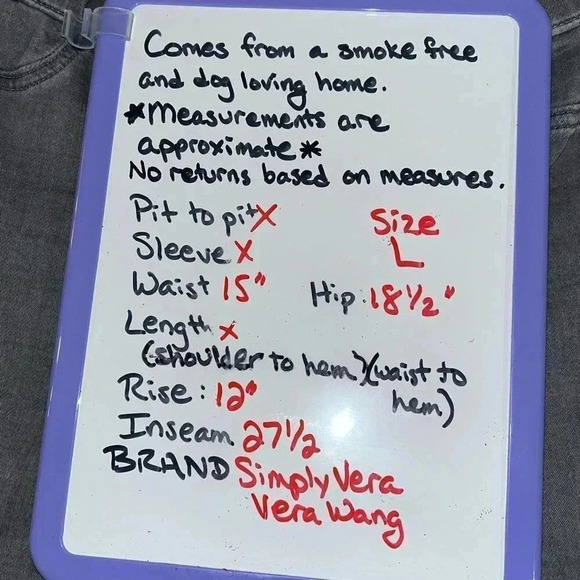 Comes from a smoke free
and dog loving home.
*Measurements are
approximate*
No returns based on measures.
Pit to pit X
Size
Sleeve X
L
Waist 15" Hip: 18 1/2"
Length x
(shoulder to hem)(waist to
hem)
Rise: 12"
Inseam 27 1/2
BRAND Simply Vera
Vera Wang